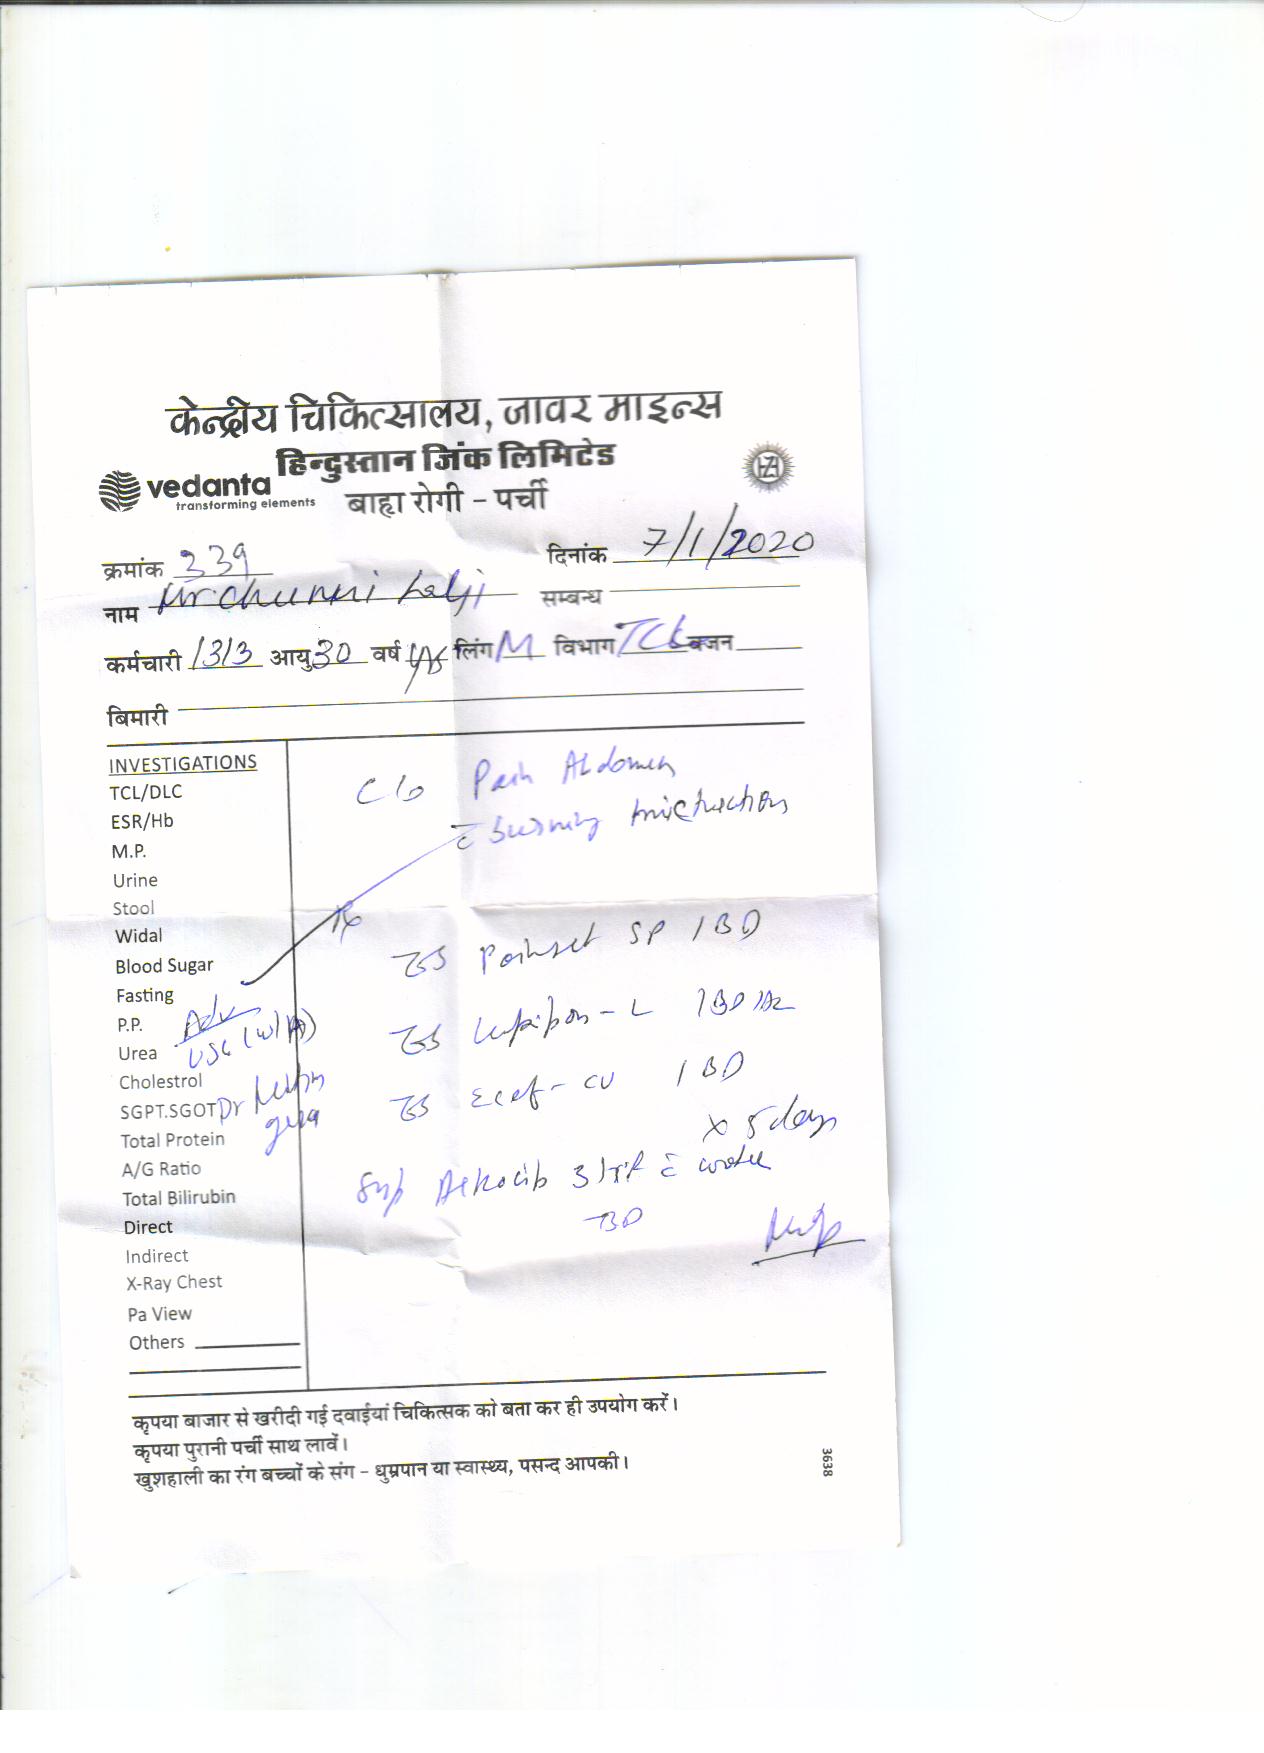 केन्द्रीय चिकित्सालय, जावर माइन्स
हिन्दुस्तान जिंक लिमिटेड
vedanta
transforming elements
बाह्य रोगी - पर्ची
क्रमांक 339 दिनांक 7/1/2020
नाम Mr Chunni Lalji सम्बन्ध
कर्मचारी 1313 आयु 30 वर्ष yrs लिंग M विभाग वजन
बिमारी
INVESTIGATIONS
TCL/DLC
ESR/Hb
M.P.
Urine
Stool
Widal
Blood Sugar
Fasting
P.P.
Urea
Cholestrol
SGPT.SGOT
Total Protein
A/G Ratio
Total Bilirubin
Direct
Indirect
X-Ray Chest
Pa View
Others
Adv
USG (W/A)
Dr
C/o Pain Abdomen
c burning micturation
Rx
SP 1 BD
- L 1 BD
- CV 1 BD
x 5 days
Syp Alkacib 3 c water
BD
कृपया बाजार से खरीदी गई दवाईयां चिकित्सक को बता कर ही उपयोग करें।
कृपया पुरानी पर्ची साथ लावें।
खुशहाली का रंग बच्चों के संग - धुम्रपान या स्वास्थ्य, पसन्द आपकी।
3638